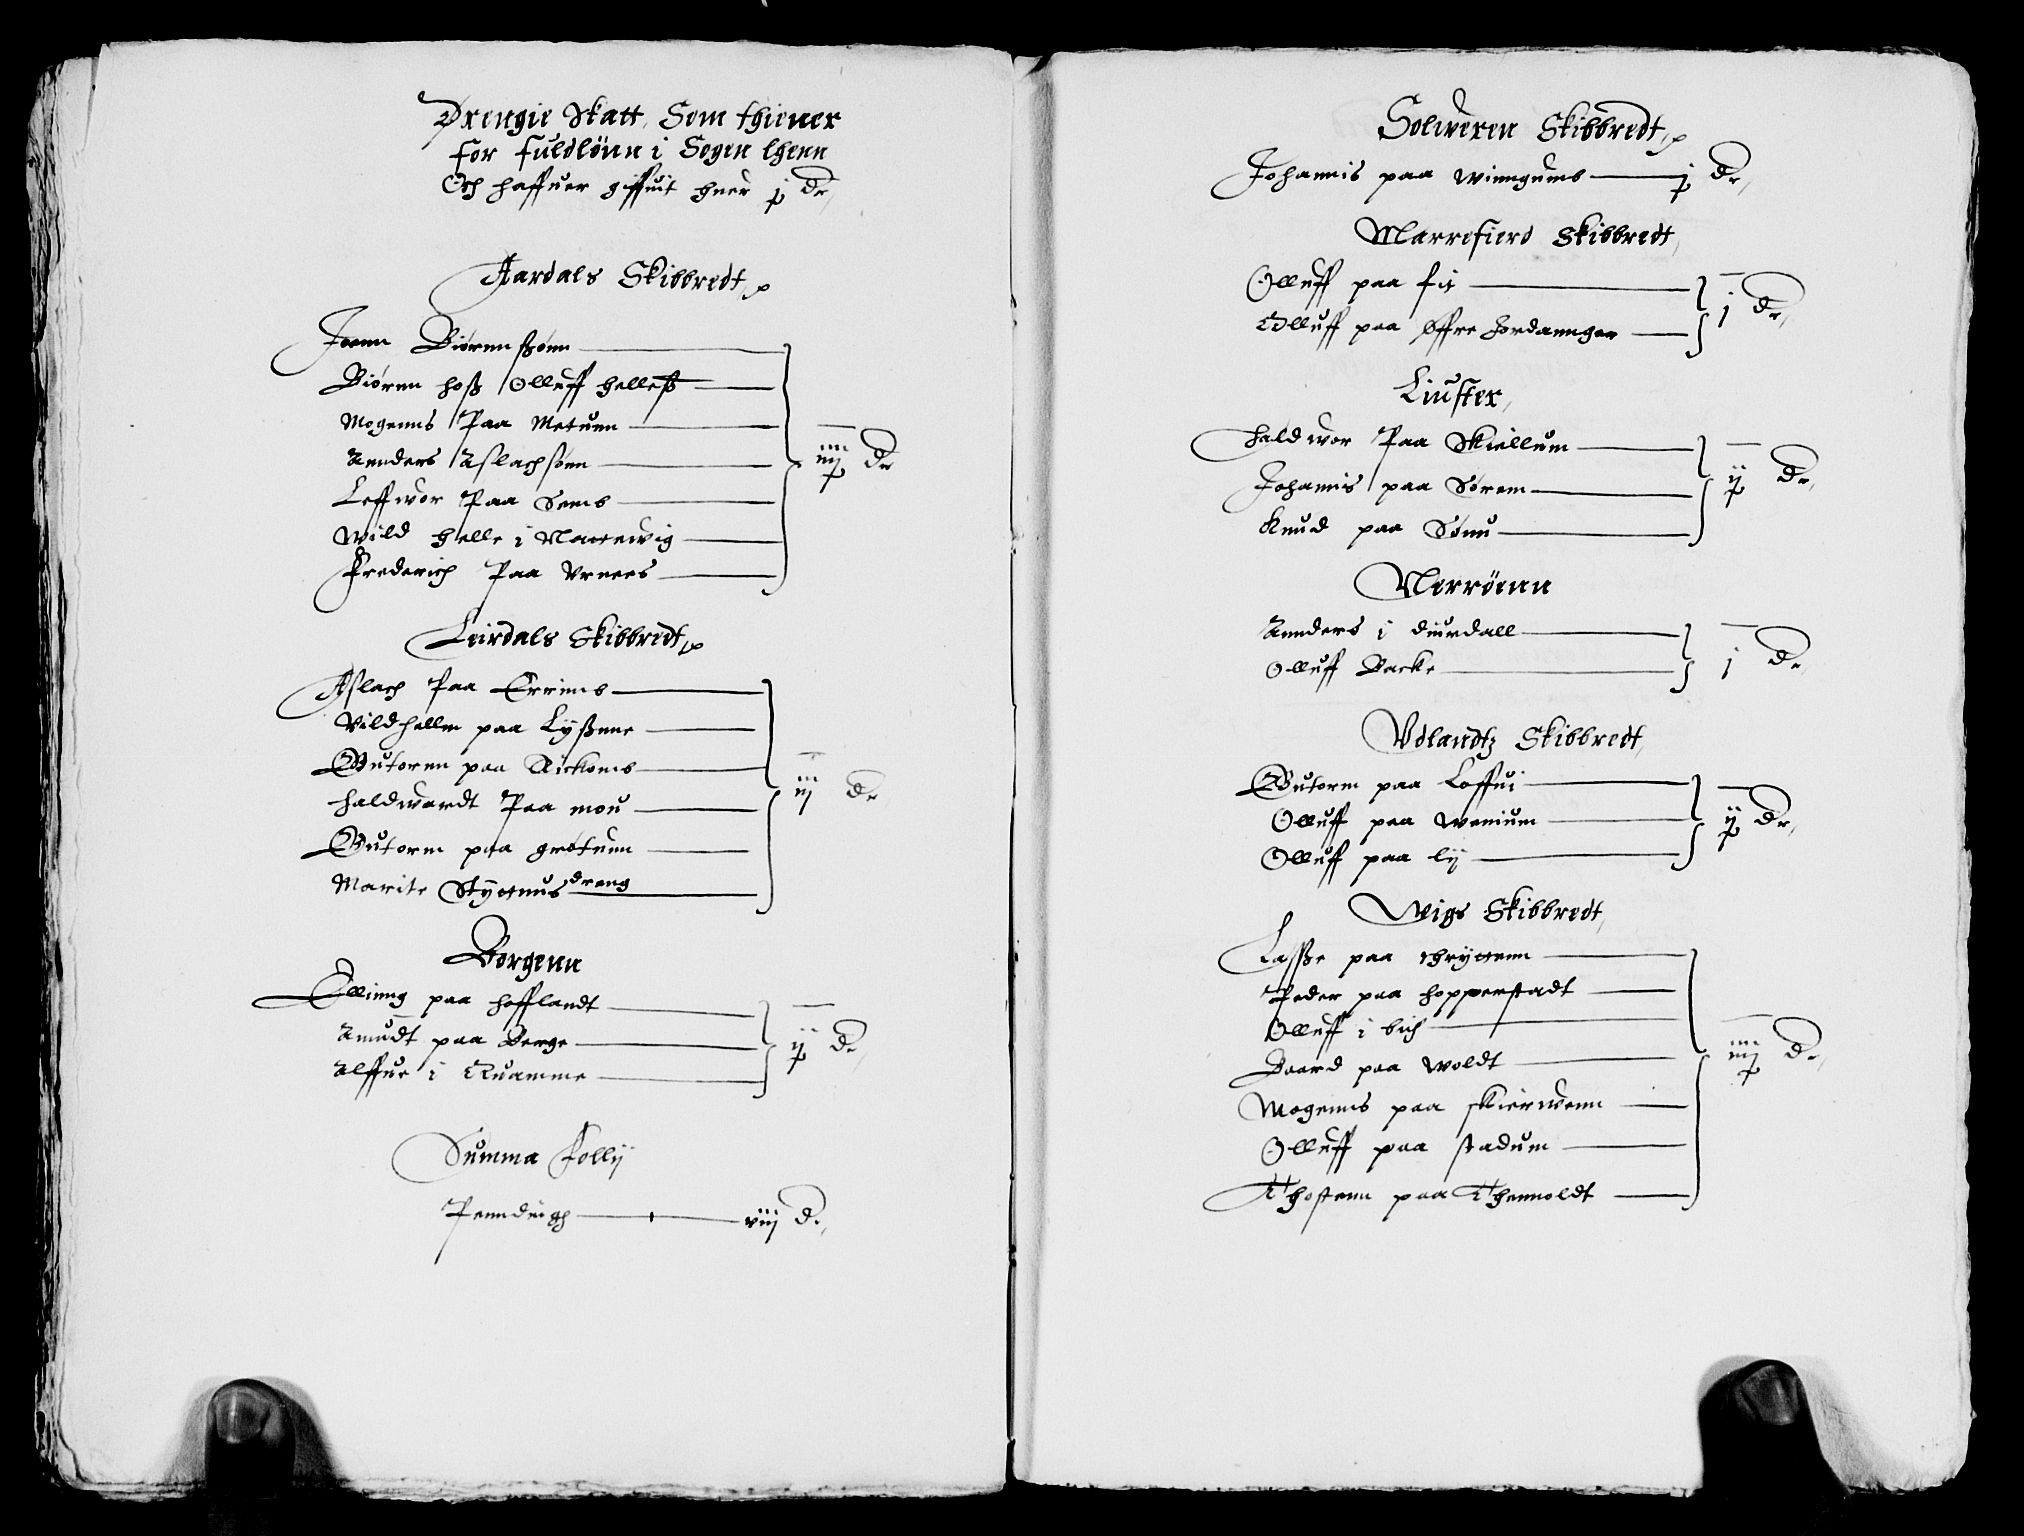 Drengie Skatt, Som thiener
for fuldlönn i Sogen lhenn
Och haffuer giffuit huer j dr
Aardals Skibbredt
Joenn Biörennßönn
Biörenn hoß Olluff helleß
Mogenns Paa Metuenn
Annders Aslachsönn
Leffwor Paa Semb
Wild helle i Naaewig
Frederich Paa Vrnees
iiij dr
Leirdals Skibbredt
Aslach Paa Errinnb
Vildhellm paa Lyßnne
Gutorm paa Rickomb
haldwardt Paa mou
Gutorm paa grötuenn
Marite Styenus dreng
iij dr
Borgenn
Ellinng paa hofflandt
Amudt paa Berge
Alffue i Quamme
ij dr
Summa Follij
Penndingh viij d.
Solweren Skibbredt
Johannis paa winngumb j dr
Marrefierd Skibbredt
Olluff paa fit
Olluff paa Öffre hordannger
j dr
Liuster
haldwor Paa Skiellum
Johannis paa Sörem
Knud paa Sönn
ij dr
Nerröenn
Annders i diurdall
Olluff Backe
j dr
Vdlandtz Skibbredt
Gutorm paa Loffui
Olluff paa wenium
Olluff paa lij
ij dr
Wigs Skibbredt
Laßße paa thryenn
Peder paa hopperstadt
Olluff i buch
Baard paa Woldt
Mogenns paa skierwenn
Olluff paa stadum
Thostenn paa Thennoldt
iiij dr